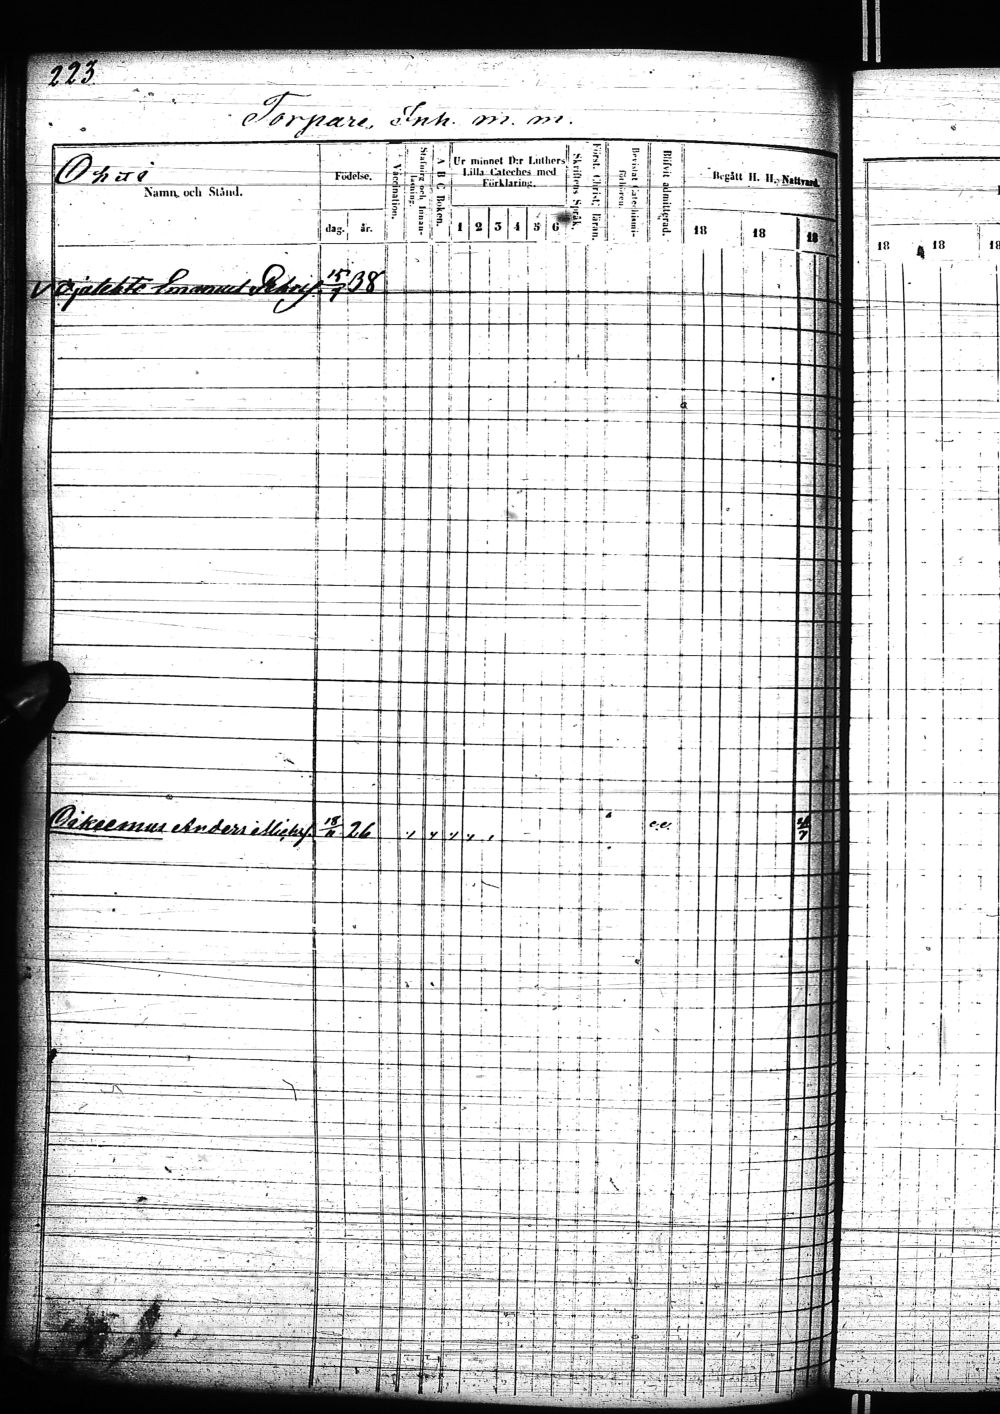 223
Torpare, Inh. m. m.
Namn och Stånd.
Födelse.
dag. år.
Vaccination.
Stafning och Innanläsning.
A B C Boken.
Ur minnet D:r Luthers Lilla Cateches med Förklaring.
1 2 3 4 5 6
Skriftens Språk.
Först. Christ. läran.
Bevistat Catechismiförhören.
Blifvit admitterad.
Begått H. H. Nattvard.
18 18 18
18 18 18
Emanuel 15/7 38
Anders 26